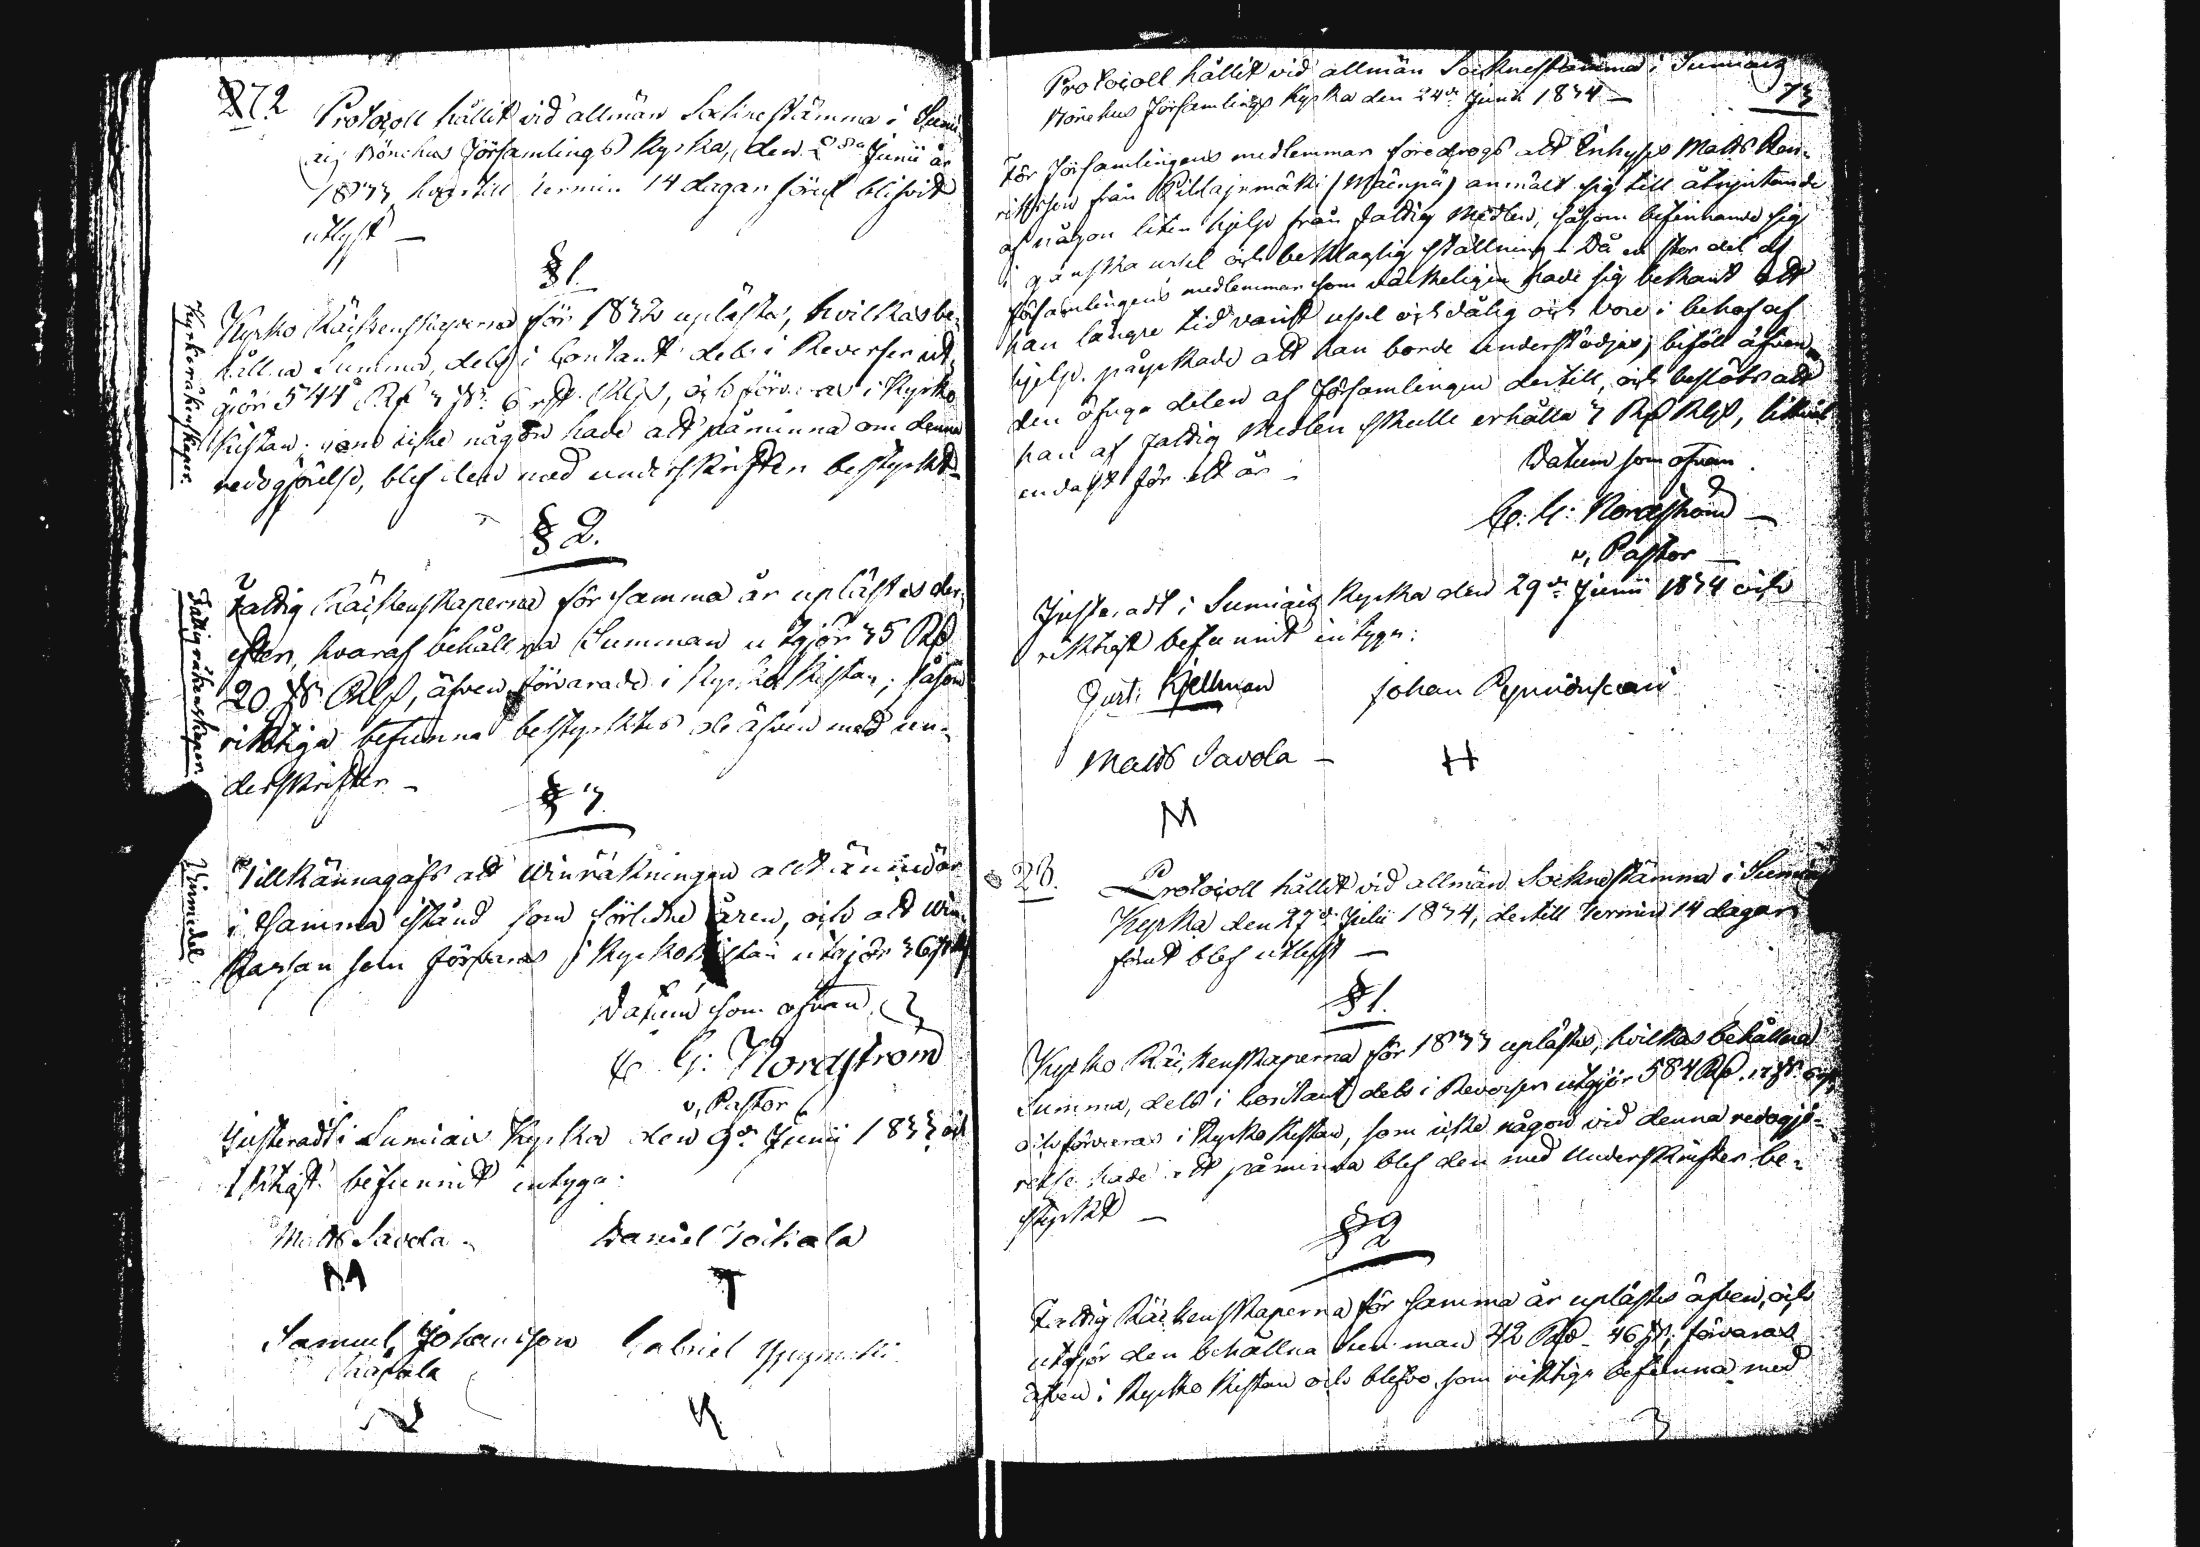 272
Protocoll hållit vid allmän Sockne stämma i Sumi
aig Bönehus Församlings Kyrka, den 2dra Junii år
1833 hvartill termin 14 dagar förut blifvit
utlyst —
§ 1.
Kyrkeräkenskaper.
Kyrko Räckenskaperna för 1832 uplästes, hvilkas be-
hållna Summa, dels i Contant dels i Reverser ut-
gjör 544 Rß 3 6 rst. Rgs, och förvaras i Kyrko
kistan; som icke någon hade att påminna om denna
redogörelse, blef den med underskriften bestyrkt —
§ 2.
Fattigräkenskaper.
Fattig Räckenskaperna för samma år uplästes der-
efter, hvaraf behållna Summan utgjör 35 Rß
20 Rgs, äfven förvarade i Kyrko Kistan; såsom
riktiga befunna bestyrktes de äfven med un-
derskriften —
§ 3.
Vinmedel
Tillkännagafs att Winräkningen allt ännu är
i samma stånd som förlidne åren, och att Win
Kassan som förvaras i Kyrkokistan utgjör 36
Datum som ofvan
C. G: Nordström
v, Pastor
Justeradt i Sumiais Kyrka den 9de Junii 1833 och
riktigt befunnit intyga:
Matts Savola — Daniel Toikala
M T
Samuel Johansson Gabriel
K
73
Protocoll hållit vid allmän Socknestämma i Sumiais
Bönehus Församlings Kyrka den 24de Junii 1834 —
För Församlingens medlemmar föredrogs att Inhyses Matts Hen-
riksson från Pillajamäki (Mäenpä) anmält sig till åtnjutande
af någon liten hjelp från Fattig Medlen, såsom befinnande sig
i ganska usel och beklaglig ställning. Då en stor del af
församlingens medlemmar som värkeligen hade sig bekant att
han längre tid varit usel och dålig och vore i behof af
hjelp påyrkade att han borde understödjas, biföll äfven
den öfriga delen af Församlingen dertill, och beslöts att
han af Fattig Medlen skulle erhålla 3 Rß Rgs, likväl
endast för ett år —
Datum som ofvan.
C. G: Nordström —
v, Pastor —
Justeradt i Sumiais Kyrka den 29de Junii 1834 och
riktigt befunnit intyga:
Gust: Kjellman Johan
Matts Savola — H
M
28.
Protocoll hållit vid allmän Socknestämma i Sumiais
Kyrka den 27de Julii 1834, dertill termin 14 dagar
förut blef utlyst —
§ 1.
Kyrko Räckenskaperna för 1833 uplästes, hvilkas behållna
Summa, dels i Contant dels i Reverser utgjör 584 Rß.
och förvaras i Kyrko Kistan, som icke någon vid denna redogjö-
relse hade att påminna blef den med Underskriften be-
styrkt —
§ 2
Fattig Räckenskaperna för samma år uplästes äfven, och
utgjör den behållna Summan 42 Rß 46 ; förvaras
äfven i Kyrko Kistan och blefvo som riktiga befunna med